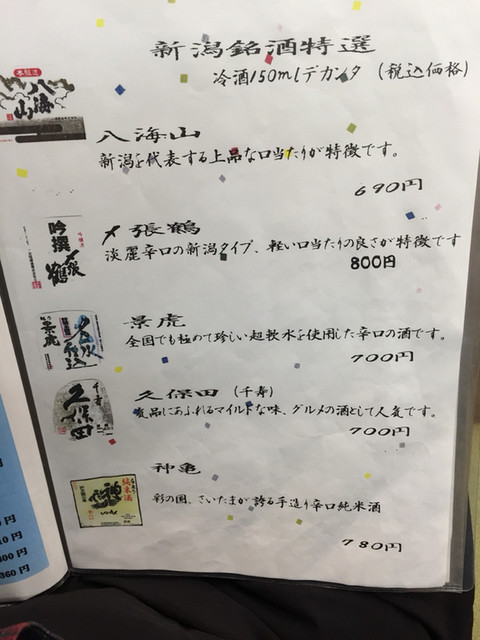 新潟銘酒特選
冷酒150mlデカンタ (税込価格)
本醸造
八海山
八海山
新潟を代表する上品な口当たりが特徴です。
690円
吟撰
〆張鶴
〆張鶴
淡麗辛口の新潟タイプ、軽い口当たりの良さが特徴です
800円
越乃景虎
名水仕込
景虎
全国でも極めて珍しい超軟水を使用した辛口の酒です。
700円
千寿
久保田
久保田 (千寿)
気品にあふれるマイルドな味、グルメの酒として人気です。
700円
純米酒
神亀
神亀
彩の国、さいたまが誇る手造り辛口純米酒
780円
円
10円
00円
360円